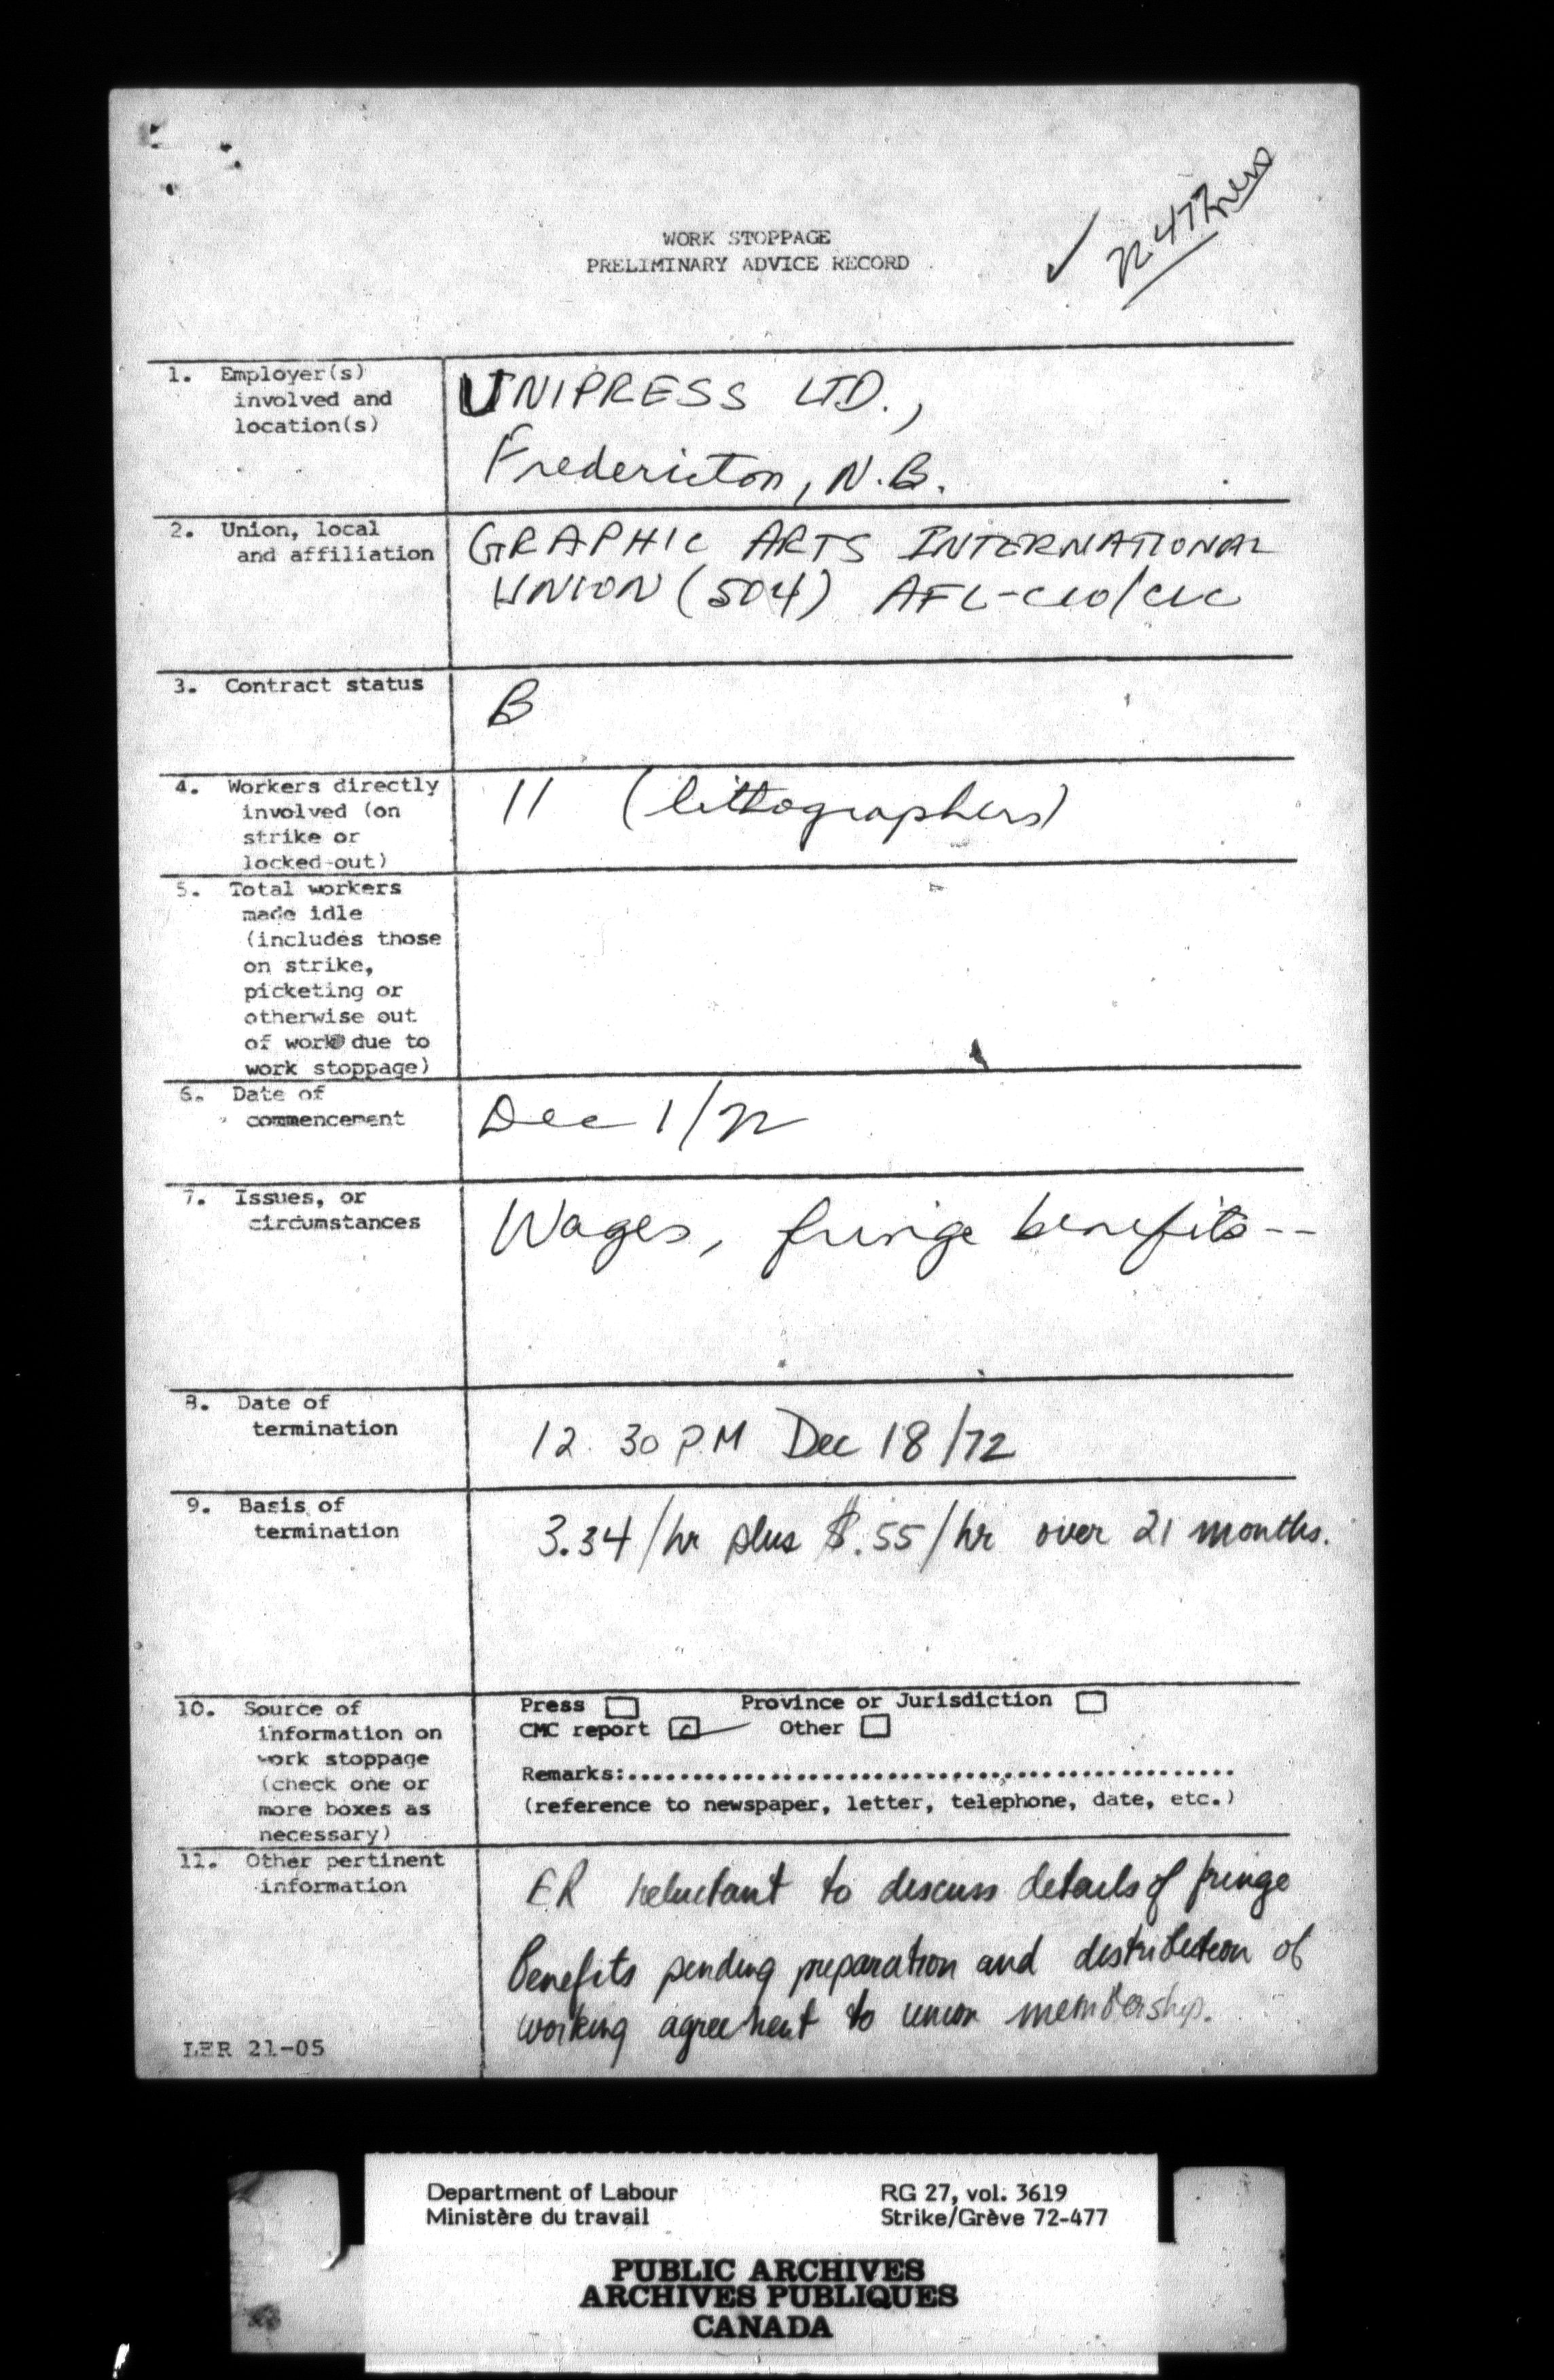 72-477 new
WORK STOPPAGE
PRELIMINARY ADVICE RECORD
1. Employer(s)
involved and
location(s)
UNIPRESS LTD.,
Fredericton, N.B.
2. Union, local
and affiliation
GRAPHIC ARTS INTERNATIONAL
UNION (504) AFL-CIO/CLC
3. Contract status
B
4. Workers directly
involved (on
strike or
locked-out)
11 (lithographers)
5. Total workers
made idle
(includes those
on strike,
picketing or
otherwise out
of work due to
work stoppage)
6. Date of
commencement
Dec 1/72
7. Issues, or
circumstances
Wages, fringe benefits--
8. Date of
termination
12 30 P.M Dec 18/72
9. Basis of
termination
3.34/hr plus $.55/hr over 21 months.
10. Source of
information on
work stoppage
(check one or
more boxes as
necessary)
Press Province or Jurisdiction
CMC report Other
Remarks:...............................................
(reference to newspaper, letter, telephone, date, etc.)
11. Other pertinent
information
ER reluctant to discuss details of fringe
benefits pending preparation and distribution of
working agreement to union membership.
LER 21-05
Department of Labour
Ministère du travail
RG 27, vol. 3619
Strike/Grève 72-477
PUBLIC ARCHIVES
ARCHIVES PUBLIQUES
CANADA